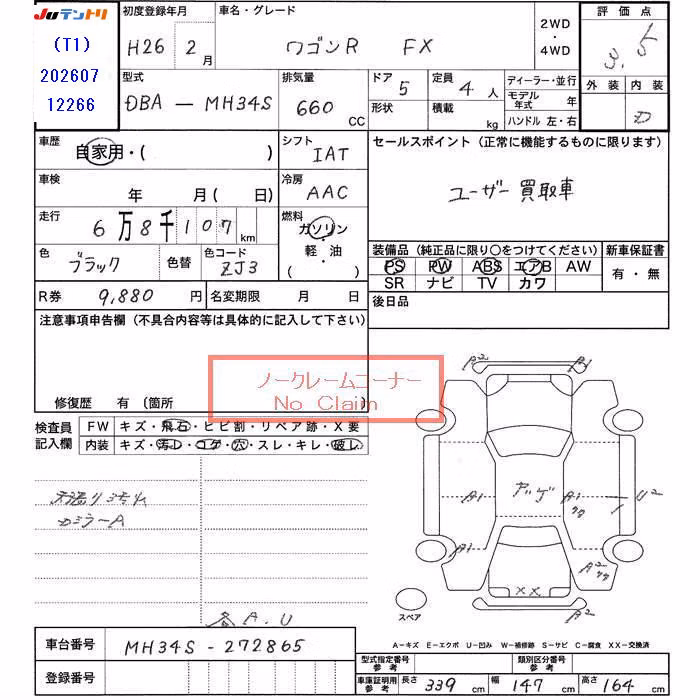 Juテントリ
(T1)
202607
12266
初度登録年月
H26 2月
車名・グレード
ワゴンR FX
2WD
・
4WD
評価点
3.5
外装 内装
D
型式
DBA－MH34S
排気量
660 CC
ドア 5
形状
定員 4人
積載 kg
ディーラー・並行
モデル年式 年
ハンドル 左・右
車歴
自家用・( )
シフト
IAT
車検
年 月( 日)
冷房
AAC
走行
6万8千107km
燃料
ガソリン
・
軽・油
( )
色
ブラック
色替
色コード
ZJ3
R券 9,880円
名変期限 月 日
セールスポイント(正常に機能するものに限ります)
ユーザー買取車
装備品(純正品に限り〇をつけてください)
PS PW ABS エアB AW
SR ナビ TV カワ
新車保証書
有・無
後日品
注意事項申告欄(不具合内容等は具体的に記入して下さい)
ノークレームコーナー
No Claim
修復歴 有(箇所
検査員記入欄
FW キズ・飛石・ヒビ割・リペア跡・X要
内装 キズ・汚レ・コゲ・穴・スレ・キレ・破レ
ドミラーA
各A.U
A2
A1
A1
アゲ
A1
U2
A1
A2
XX
A2
スペア
A－キズ E－エクボ U－凹み W－補修跡 S－サビ C－腐食 XX－交換済
車台番号 MH34S－272865
登録番号
型式指定番号参考
類別区分番号参考
車庫証明用参考 長さ 339cm 幅 147cm 高さ 164cm